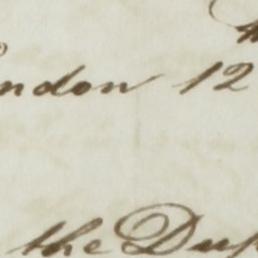 ndon 12
the Dup